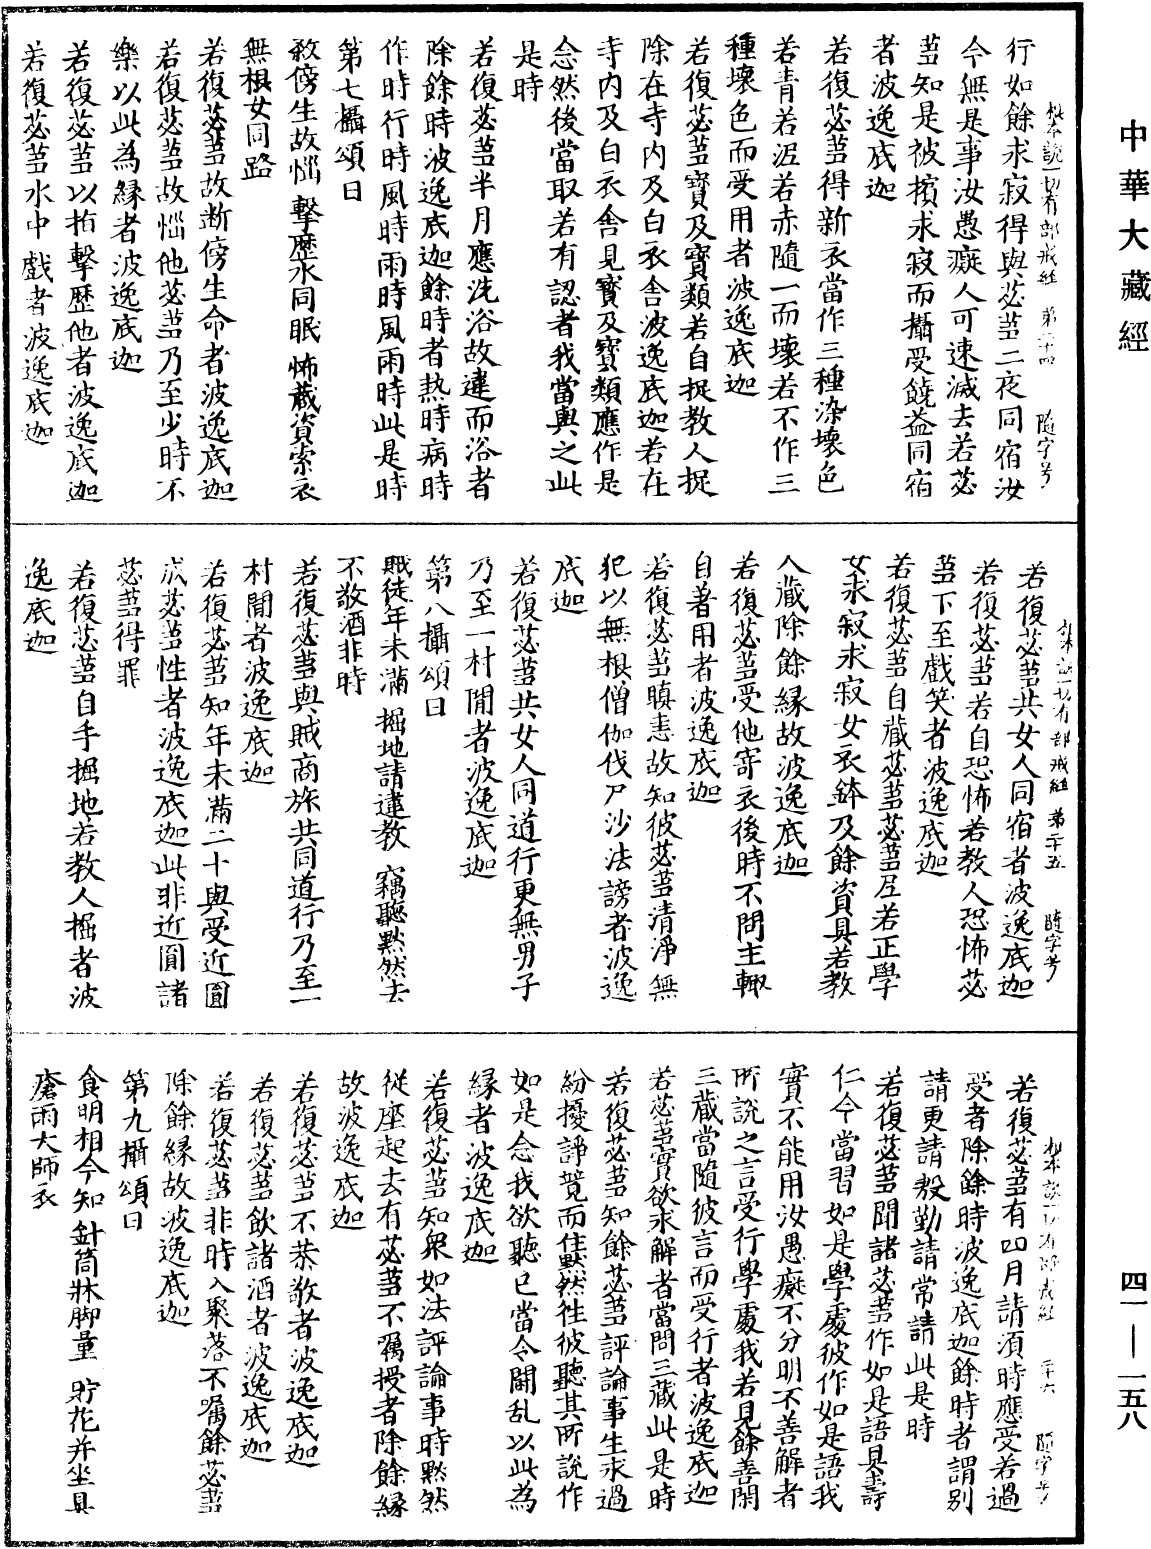 中華大藏經
根本說一切有部戒經　第二十四　隨字号
行如餘求寂得與苾芻二夜同宿汝
今無是事汝愚癡人可速滅去若苾
芻知是被擯求寂而攝受饒益同宿
者波逸底迦
若復苾芻得新衣當作三種染壞色
若青若泥若赤隨一而壞若不作三
種壞色而受用者波逸底迦
若復苾芻寶及寶類若自捉教人捉
除在寺內及白衣舍波逸底迦若在
寺內及白衣舍見寶及寶類應作是
念然後當取若有認者我當與之此
是時
若復苾芻半月應洗浴故違而浴者
除餘時波逸底迦餘時者熱時病時
作時行時風時雨時風雨時此是時
第七攝頌曰
殺傍生故惱　擊歷水同眠　怖藏資索衣
無根女同路
若復苾芻故斷傍生命者波逸底迦
若復苾芻故惱他苾芻乃至少時不
樂以此為緣者波逸底迦
若復苾芻以指擊歷他者波逸底迦
若復苾芻水中戲者波逸底迦
根本說一切有部戒經　第二十五　隨字号
若復苾芻共女人同宿者波逸底迦
若復苾芻若自恐怖若教人恐怖苾
芻下至戲笑者波逸底迦
若復苾芻自藏苾芻苾芻尼若正學
女求寂求寂女衣鉢及餘資具若教
人藏除餘緣故波逸底迦
若復苾芻受他寄衣後時不問主輒
自著用者波逸底迦
若復苾芻瞋恚故知彼苾芻清淨無
犯以無根僧伽伐尸沙法謗者波逸
底迦
若復苾芻共女人同道行更無男子
乃至一村間者波逸底迦
第八攝頌曰
賊徒年未滿　掘地請違教　竊聽默然去
不敬酒非時
若復苾芻與賊商旅共同道行乃至一
村間者波逸底迦
若復苾芻知年未滿二十與受近圓
成苾芻性者波逸底迦此非近圓諸
苾芻得罪
若復苾芻自手掘地若教人掘者波
逸底迦
根本說一切有部戒經　二十六　隨字号
若復苾芻有四月請須時應受若過
受者除餘時波逸底迦餘時者謂別
請更請慇勤請常請此是時
若復苾芻聞諸苾芻作如是語具壽
仁今當習如是學處彼作如是語我
實不能用汝愚癡不分明不善解者
所說之言受行學處我若見餘善閑
三藏當隨彼言而受行者波逸底迦
若苾芻實欲求解者當問三藏此是時
若復苾芻知餘苾芻評論事生求過
紛擾諍競而住默然往彼聽其所說作
如是念我欲聽已當令鬪乱以此為
緣者波逸底迦
若復苾芻知眾如法評論事時默然
從座起去有苾芻不囑授者除餘緣
故波逸底迦
若復苾芻不恭敬者波逸底迦
若復苾芻飲諸酒者波逸底迦
若復苾芻非時入聚落不囑餘苾芻
除餘緣故波逸底迦
第九攝頌曰
食明相今知　針筒牀脚量　貯花并坐具
瘡雨大師衣
四一——一五八